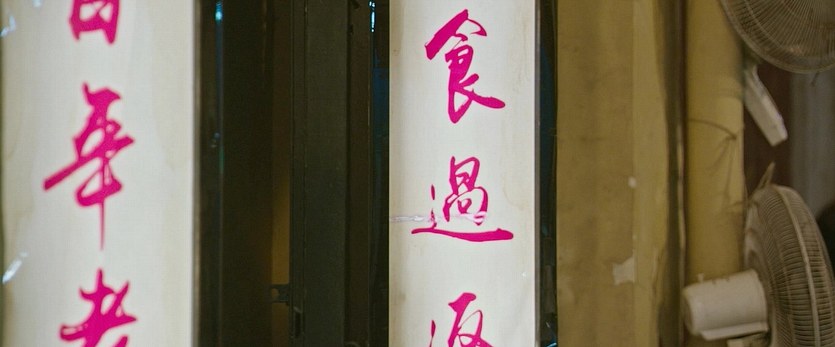 食過返
百年老